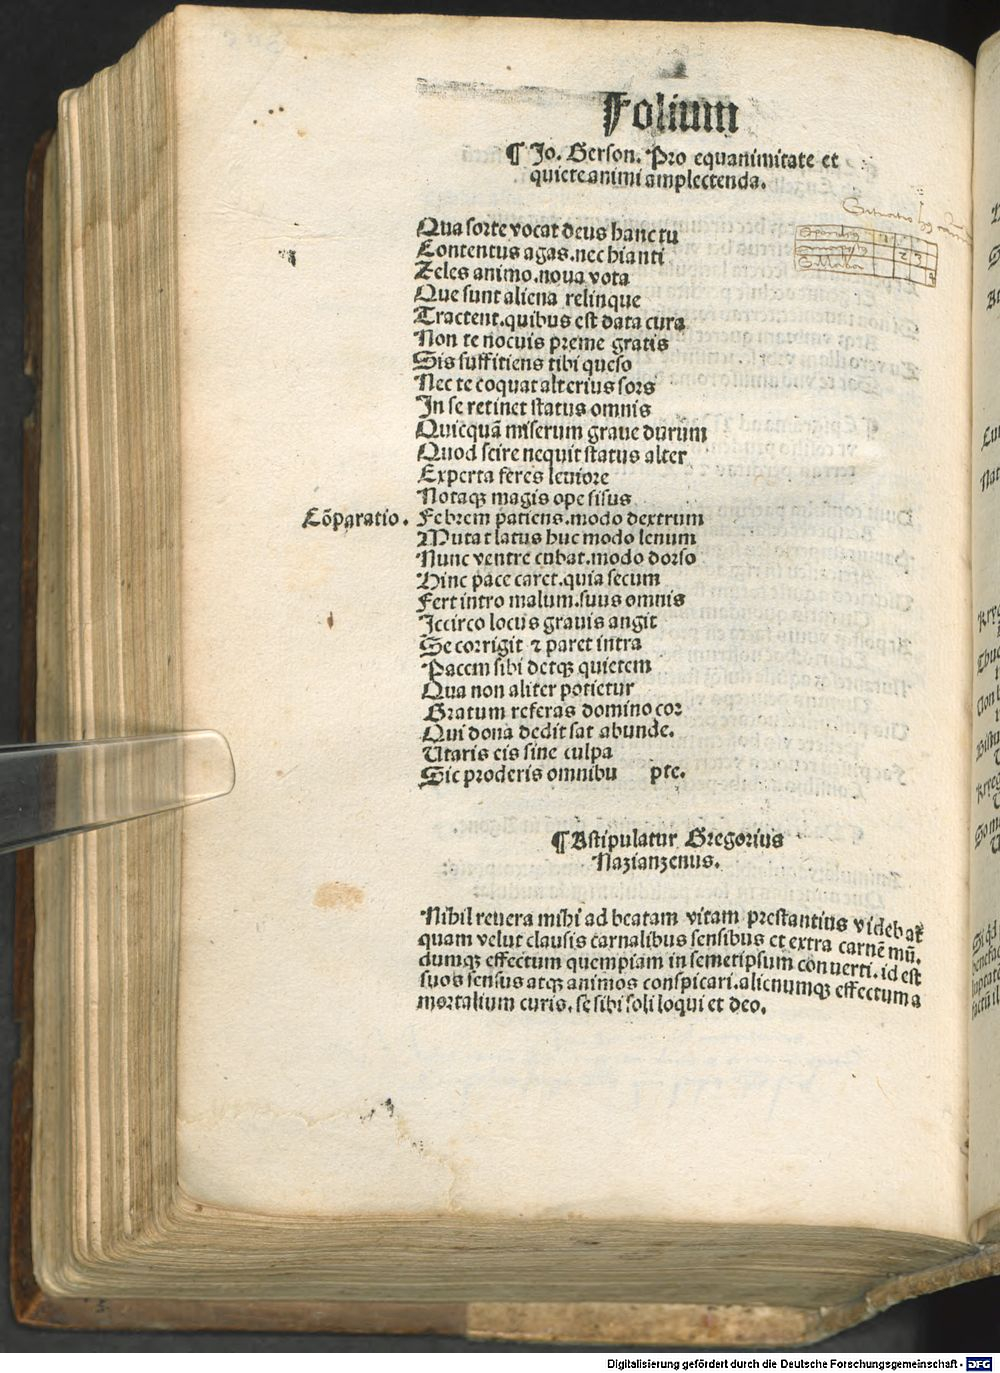 Folium
¶ Jo. Gerson. Pro equanimitate et
quiete animi amplectenda.
Qua sorte vocat deus hanc tu
Contentus agas. nec hianti
Zeles animo. noua vota
Que sunt aliena relinque
Tractent. quibus est data cura
Non te nocuis preme gratis
Sis suffitiens tibi queso
Nec te coquat alterius sors
In se retinet status omnis
Quicquā miserum graue durum
Quod scire nequit status alter
Experta feres leuiore
Notaqꝫ magis ope sisus
Cōparatio. Febrem patiens. modo dextrum
Mutat latus huc modo lenum
Nunc ventre cubat. modo dorso
Hinc pace caret. quia secum
Fert intro malum. suus omnis
Iccirco locus grauis angit
Se corrigit ⁊ paret intra
Pacem sibi detqꝫ quietem
Qua non aliter potietur
Gratum referas domino cor
Qui dona dedit sat abunde.
Utaris eis sine culpa
Sic proderis omnibu ptc.
¶ Astipulatur Gregorius
Nazianzenus.
Nihil reuera mihi ad beatam vitam prestantius videbat
quam velut clausis carnalibus sensibus et extra carnē mū.
dumqꝫ effectum quempiam in semetipsum conuerti. id est
suos sensus atqꝫ animos conspicari. alienumqꝫ effectum a
mortalium curis. se sibi soli loqui et deo.
Digitalisierung gefördert durch die Deutsche Forschungsgemeinschaft - DFG